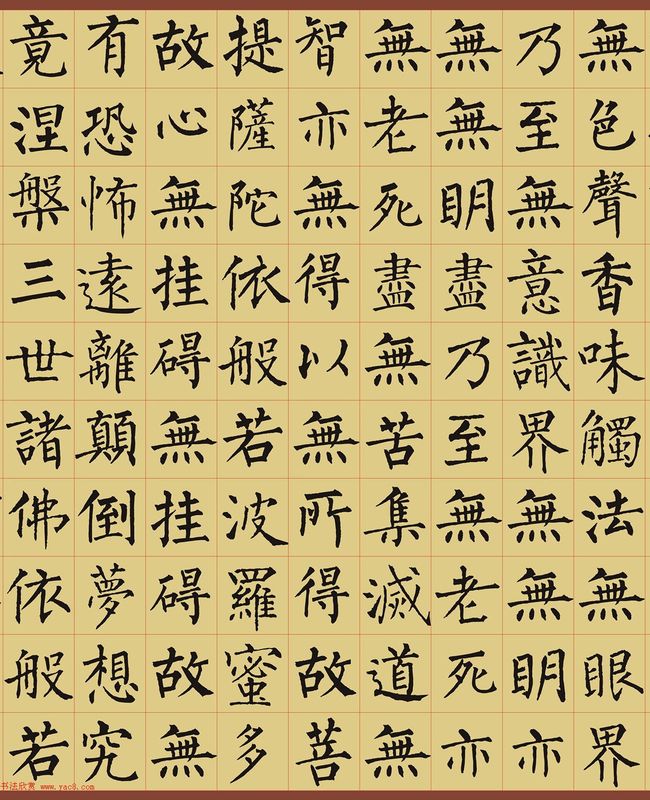 無色聲香味觸法無眼界
乃至無意識界無無明亦
無無明盡乃至無老死亦
無老死盡無苦集滅道無
智亦無得以無所得故菩
提薩陀依般若波羅蜜多
故心無挂碍無挂碍故無
有恐怖遠離顛倒夢想究
竟涅槃三世諸佛依般若
书法欣赏 www.yac8.com